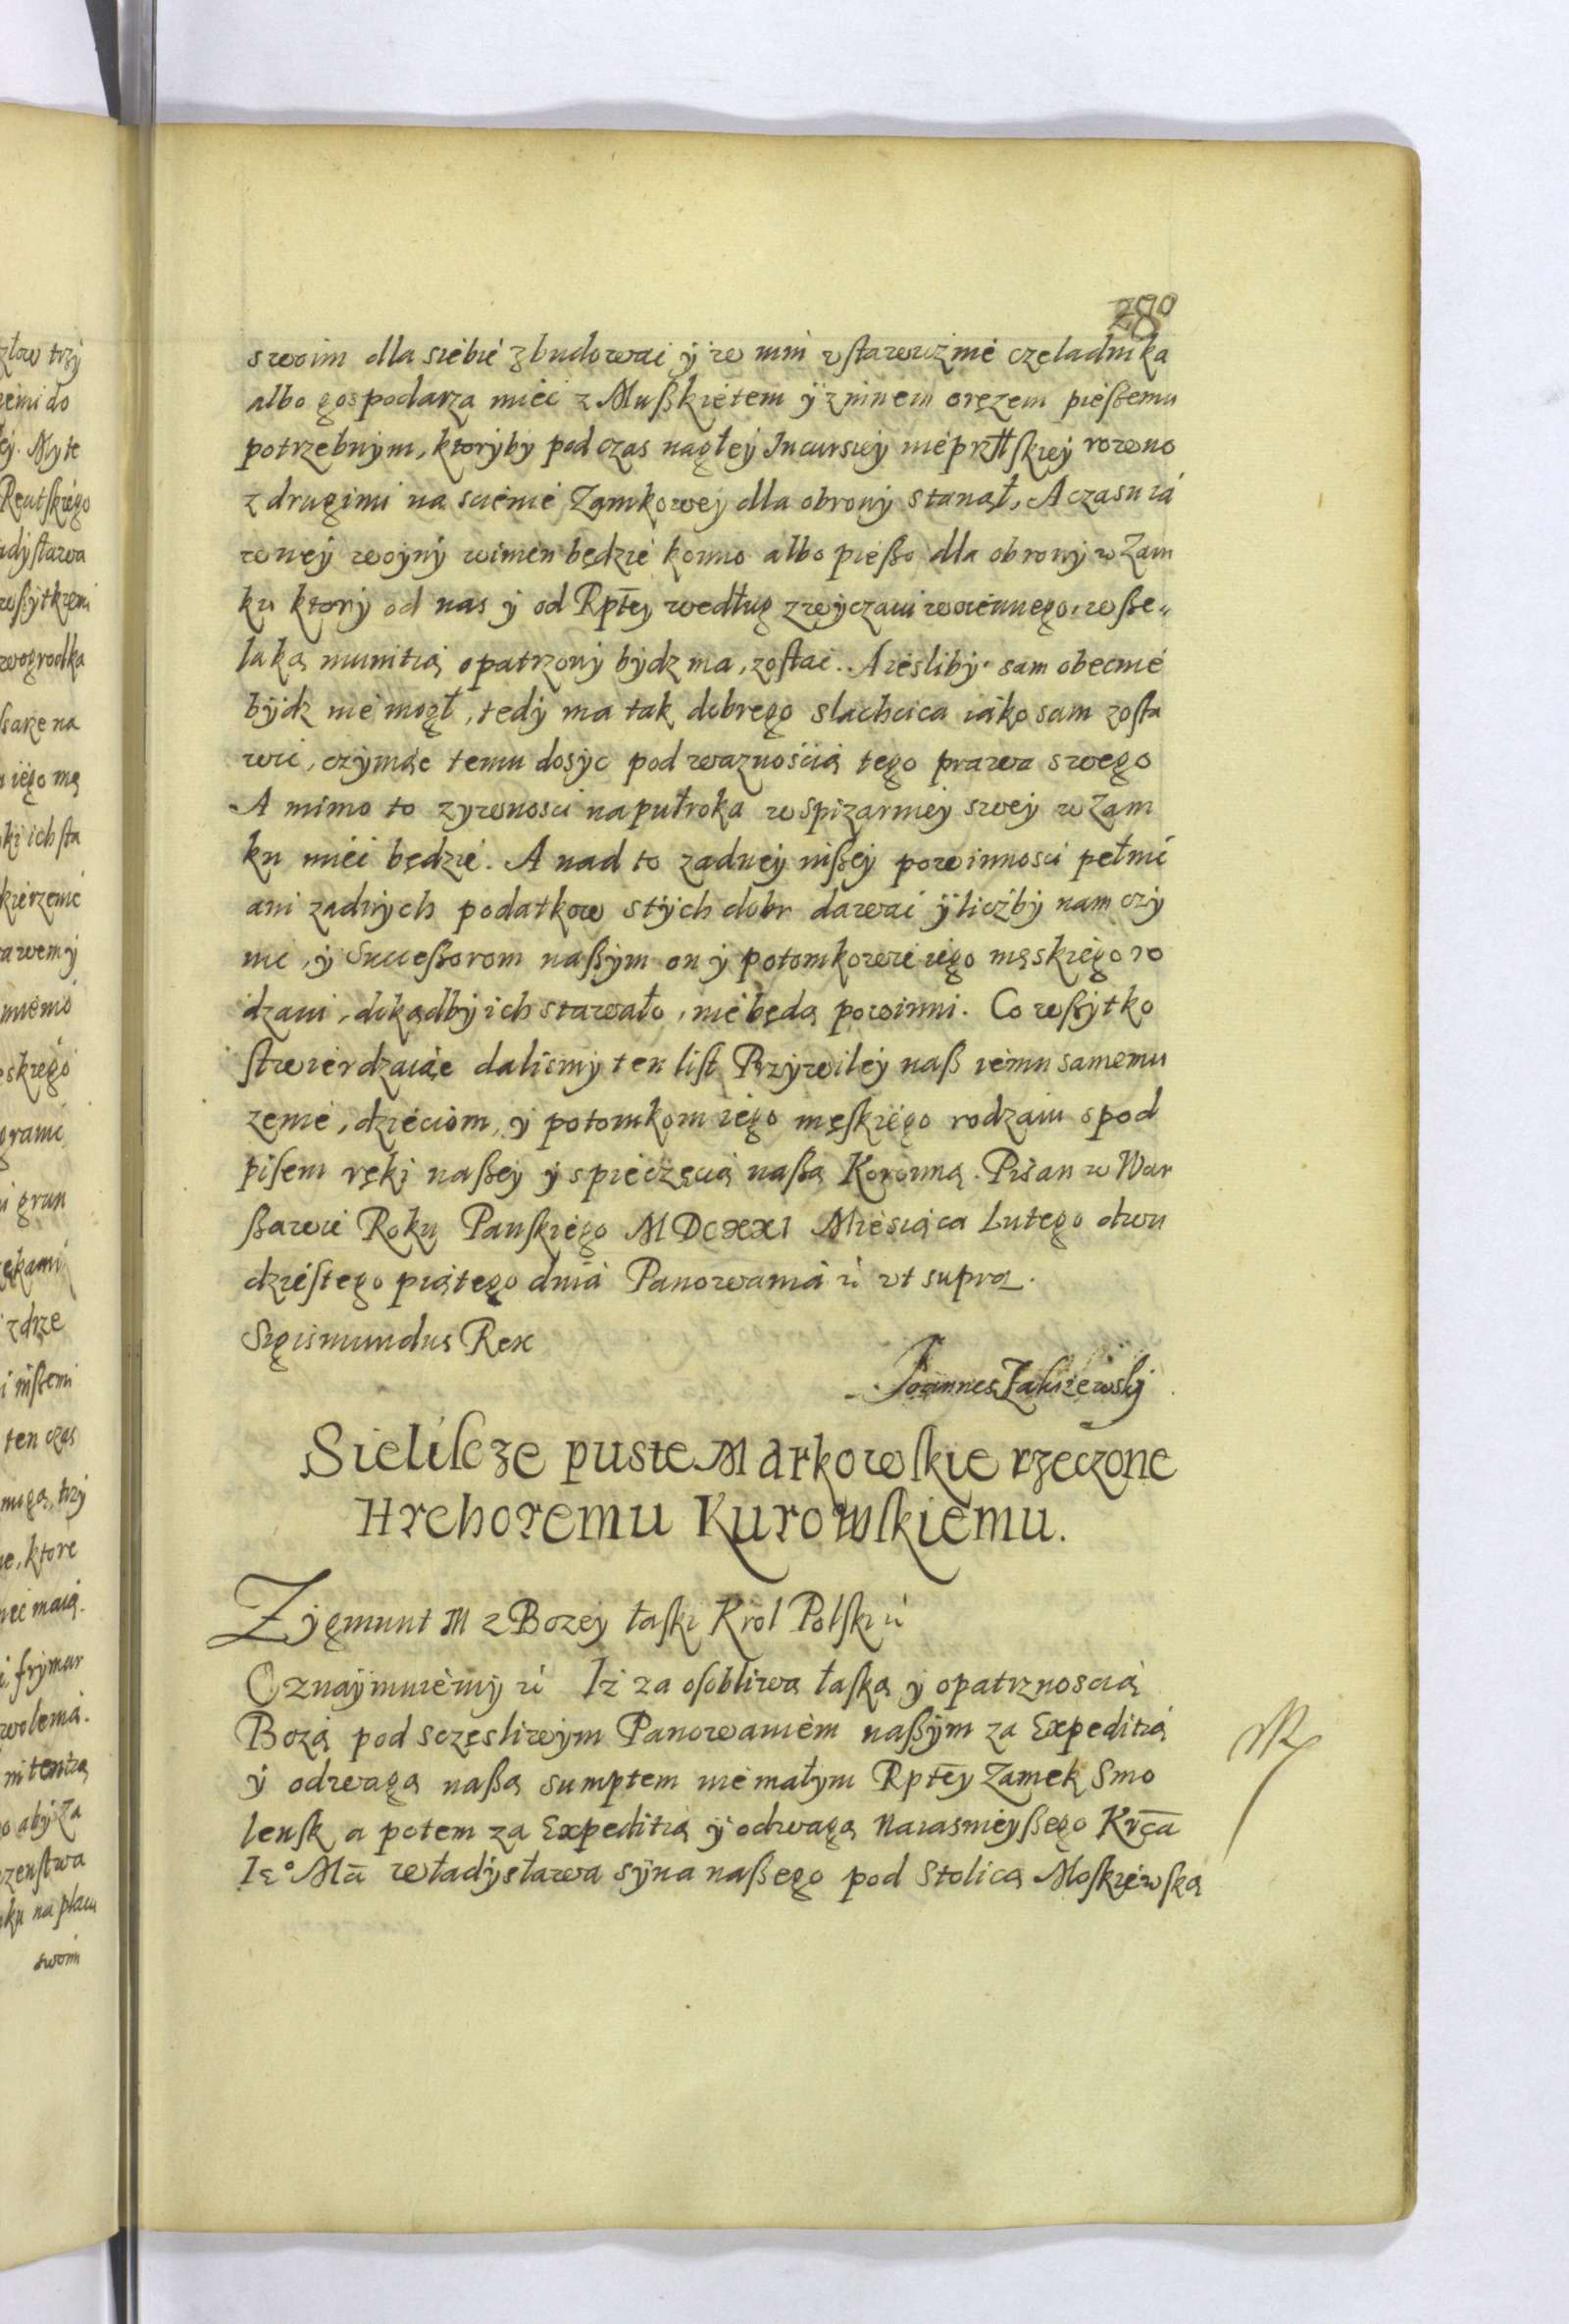 280
swoim dla siebie zbudowai ÿ w nim vstawicznie czeladnika
albo gospodarza miéi z Mußkietem ÿ z ninem orężem pießemu
potrzebnym, ktoryby pod czas nagłey Incursiey nieprzÿłskiey rowno
z drugimi na scienie Zamkowey dla obrony stanął, A czasu ia
wney woyny winien będzie konno albo pießo dla obrony w Zam
ku ktory od nas y od Rptey według zwyczaiu woiennego, wße„
laką munitią opatrzony bydz ma, zostai. A iesliby sam obecnie
bydz nie mogł, tedy ma tak dobrego slachcica iako sam zosta
wic, czyniąc temu dosyc pod waznoscią tego prawa swego
A mimo to zywnosci na pułroka w spizarniey swey w Zam
ku miéi będzie. A nad to zadney inßey powinnosci pełnic
ani zadnych podatkow s tych dobr dawai ÿ liczby nam czy
nic, y Sucessorom naßym on y potomkowie iego męskiego ro
dzaiu, dokądby ich stawało, nie będą powinni. Co wßytko
stwierdzaiąc dalismy ten list Przywiley naß iemu samemu
zenie, dzieciom, y potomkom iego męskiego rodzaiu s pod
pisem ręki naßey y s pieczęcią naßą Koronną. Pisan w War
ßawie Roku Panskiego MDCXXI Miesiąca Lutego dwu
dziestego piątego dnia Panowania ſc vt supra.
Sigismundus Rex
Joannes Zakrzewsky
Sielilcze puste Markowskie rzeczone
Hrehoremu Kurowskiemu.
Zygmunt III z Bozey łaski Krol Polski ſc
Oznaymuiemy ſc Iz za osobliwą łaską y opatrznoscią
Bozą pod sczęsliwym Panowaniem naßym za Expeditią
y odwagą naßą sumptem niemałym Rptey Zamek Smo
lensk a potem za Expeditią y odwagą Naiasnieyßego Krca
Ie° Ma władysława syna naßego pod Stolicą Moskiewską